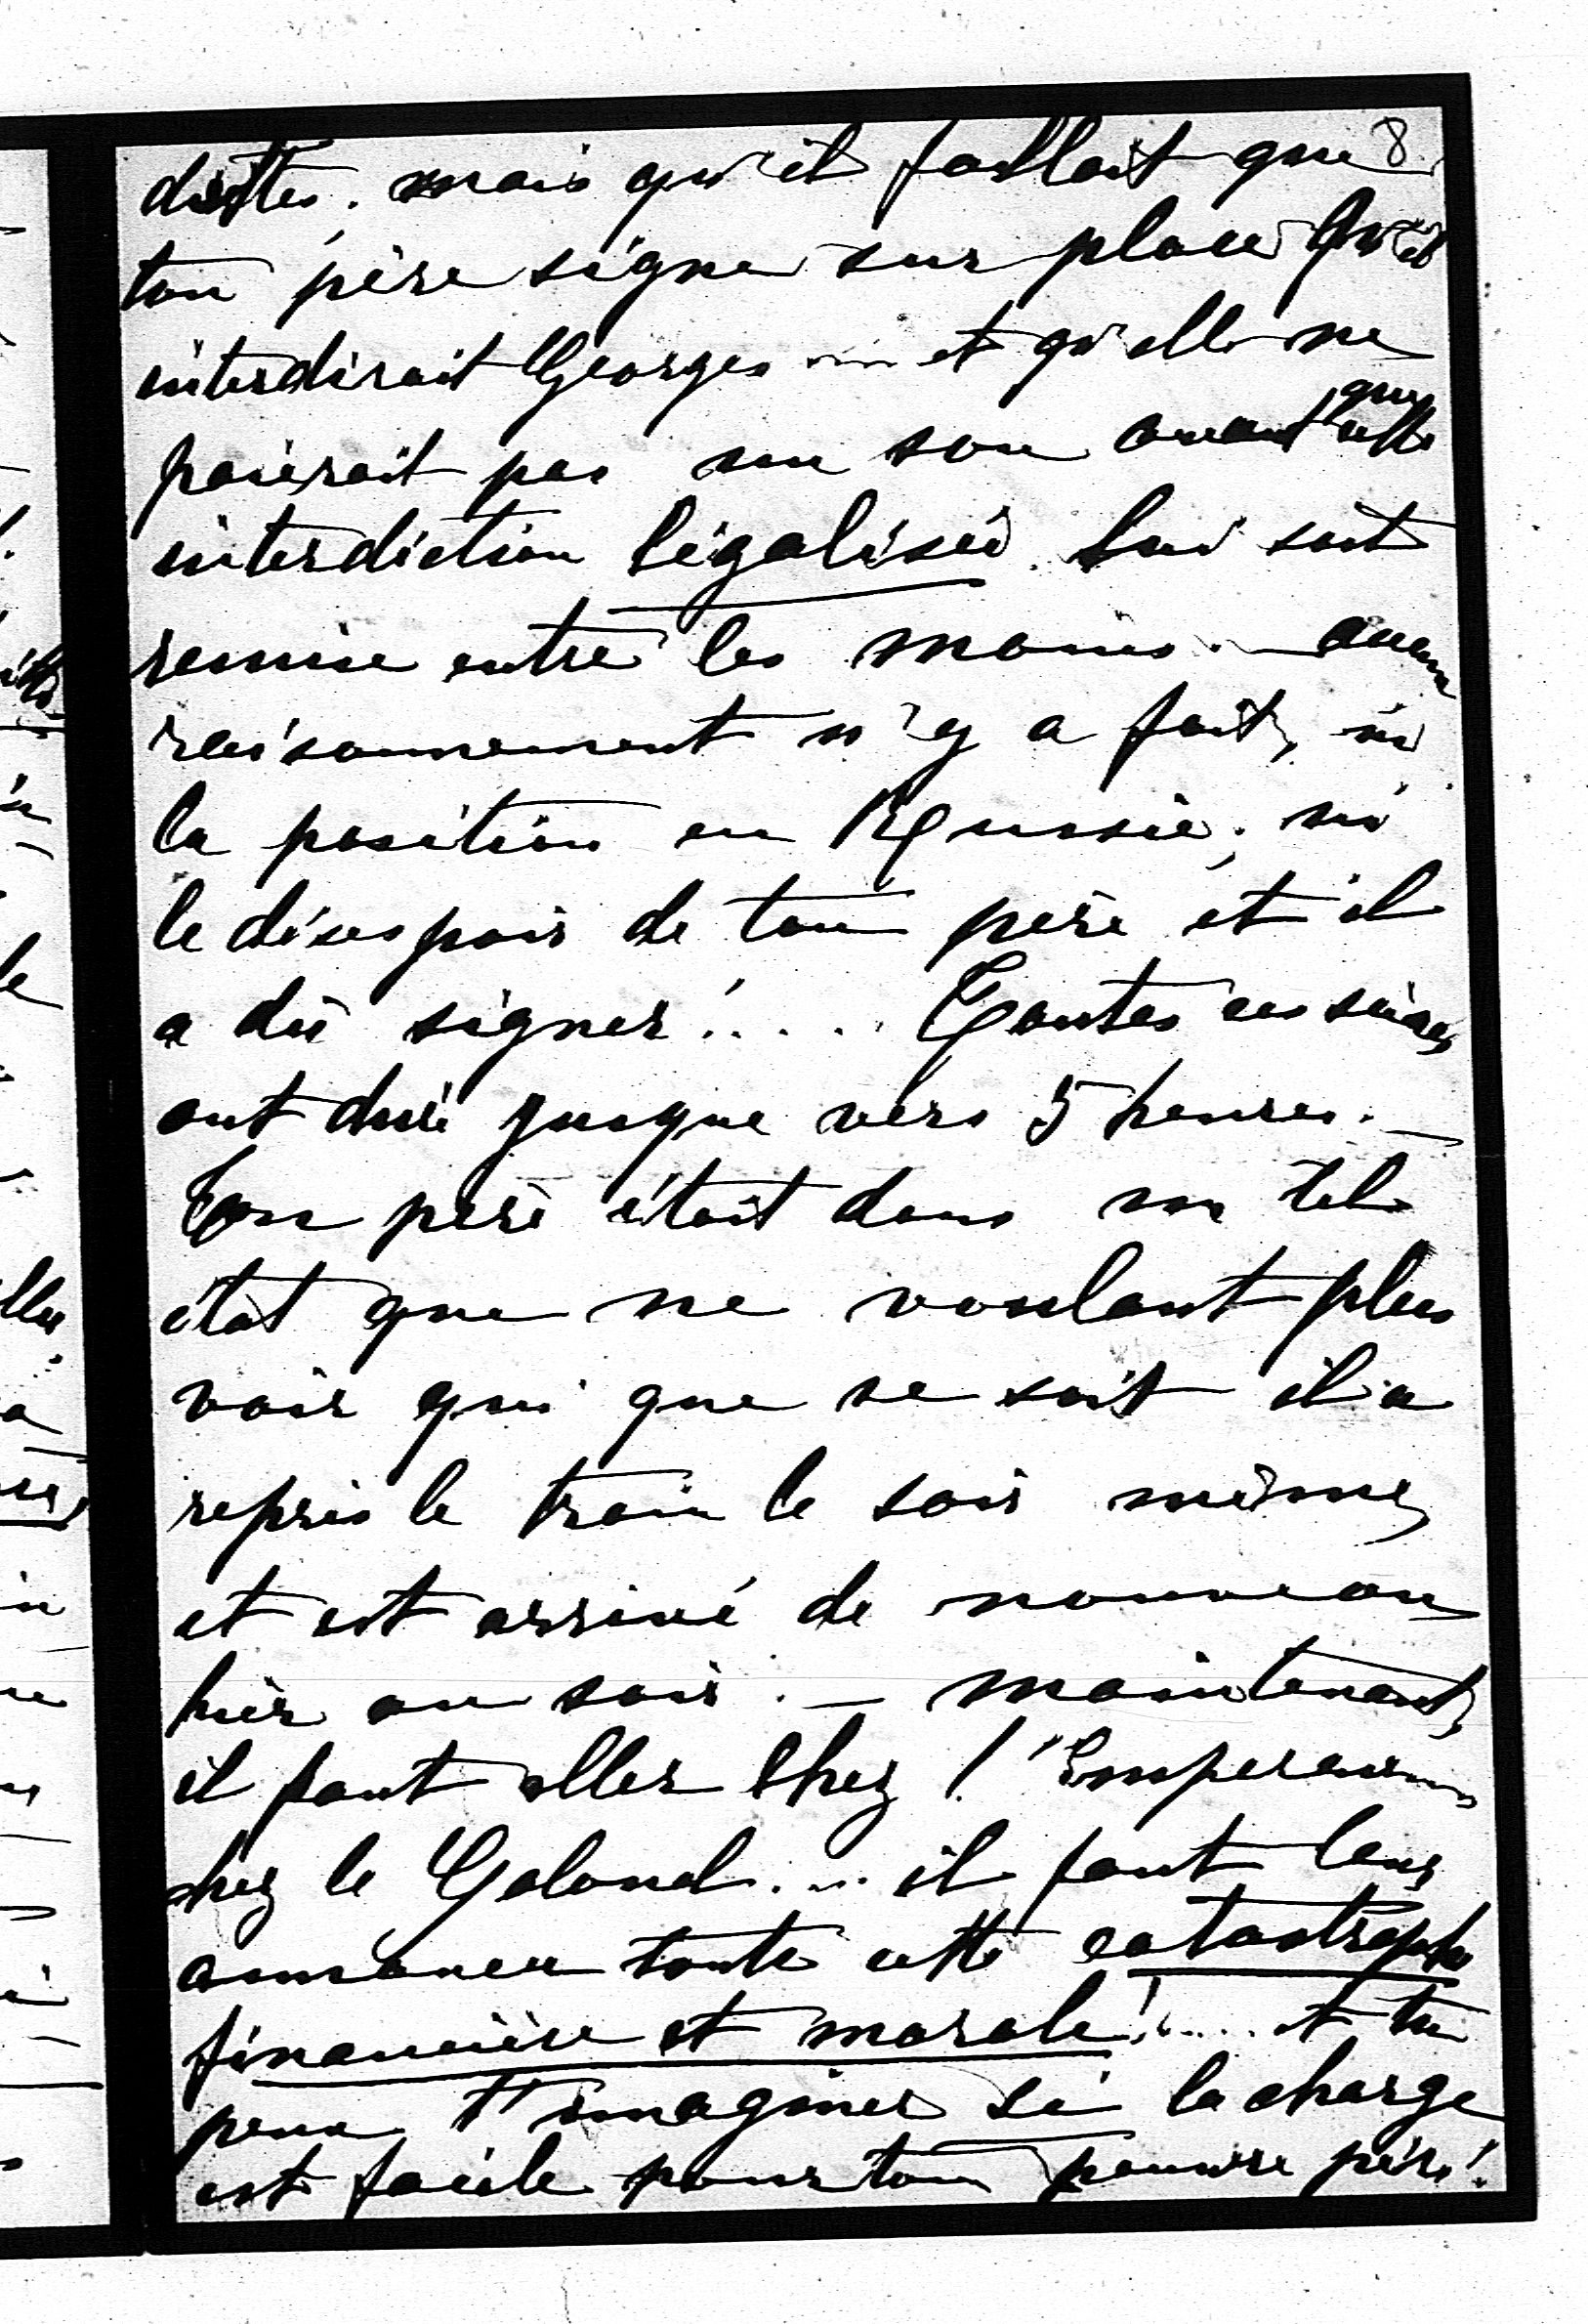 8.
dettes. mais qu'il fallait que
ton père signe sur place qu'il
interdirait Georges ... et qu'elle ne
paierait pas un sou avant que cette
interdiction légalisée. lui soit
remise entre les mains. — aucun
raisonnement n'y a fait, ni
la position en Russie, ni
le désespoir de ton père et il
a dû signer! .... Toutes ces scènes
ont duré jusque vers 5 heures. —
Ton père était dans un tel
état que ne voulant plus
voir qui que se soit il a
repris le train le soir même,
et est arrivé de nouveau
hier au soir. — maintenant,
il faut aller chez l'Empereur
chez le Colonel .... il faut leur
annoncer toute cette catastrophe
financière et morale! ..... et tu
peux t'imaginer si la charge
est facile pour ton pauvre père!